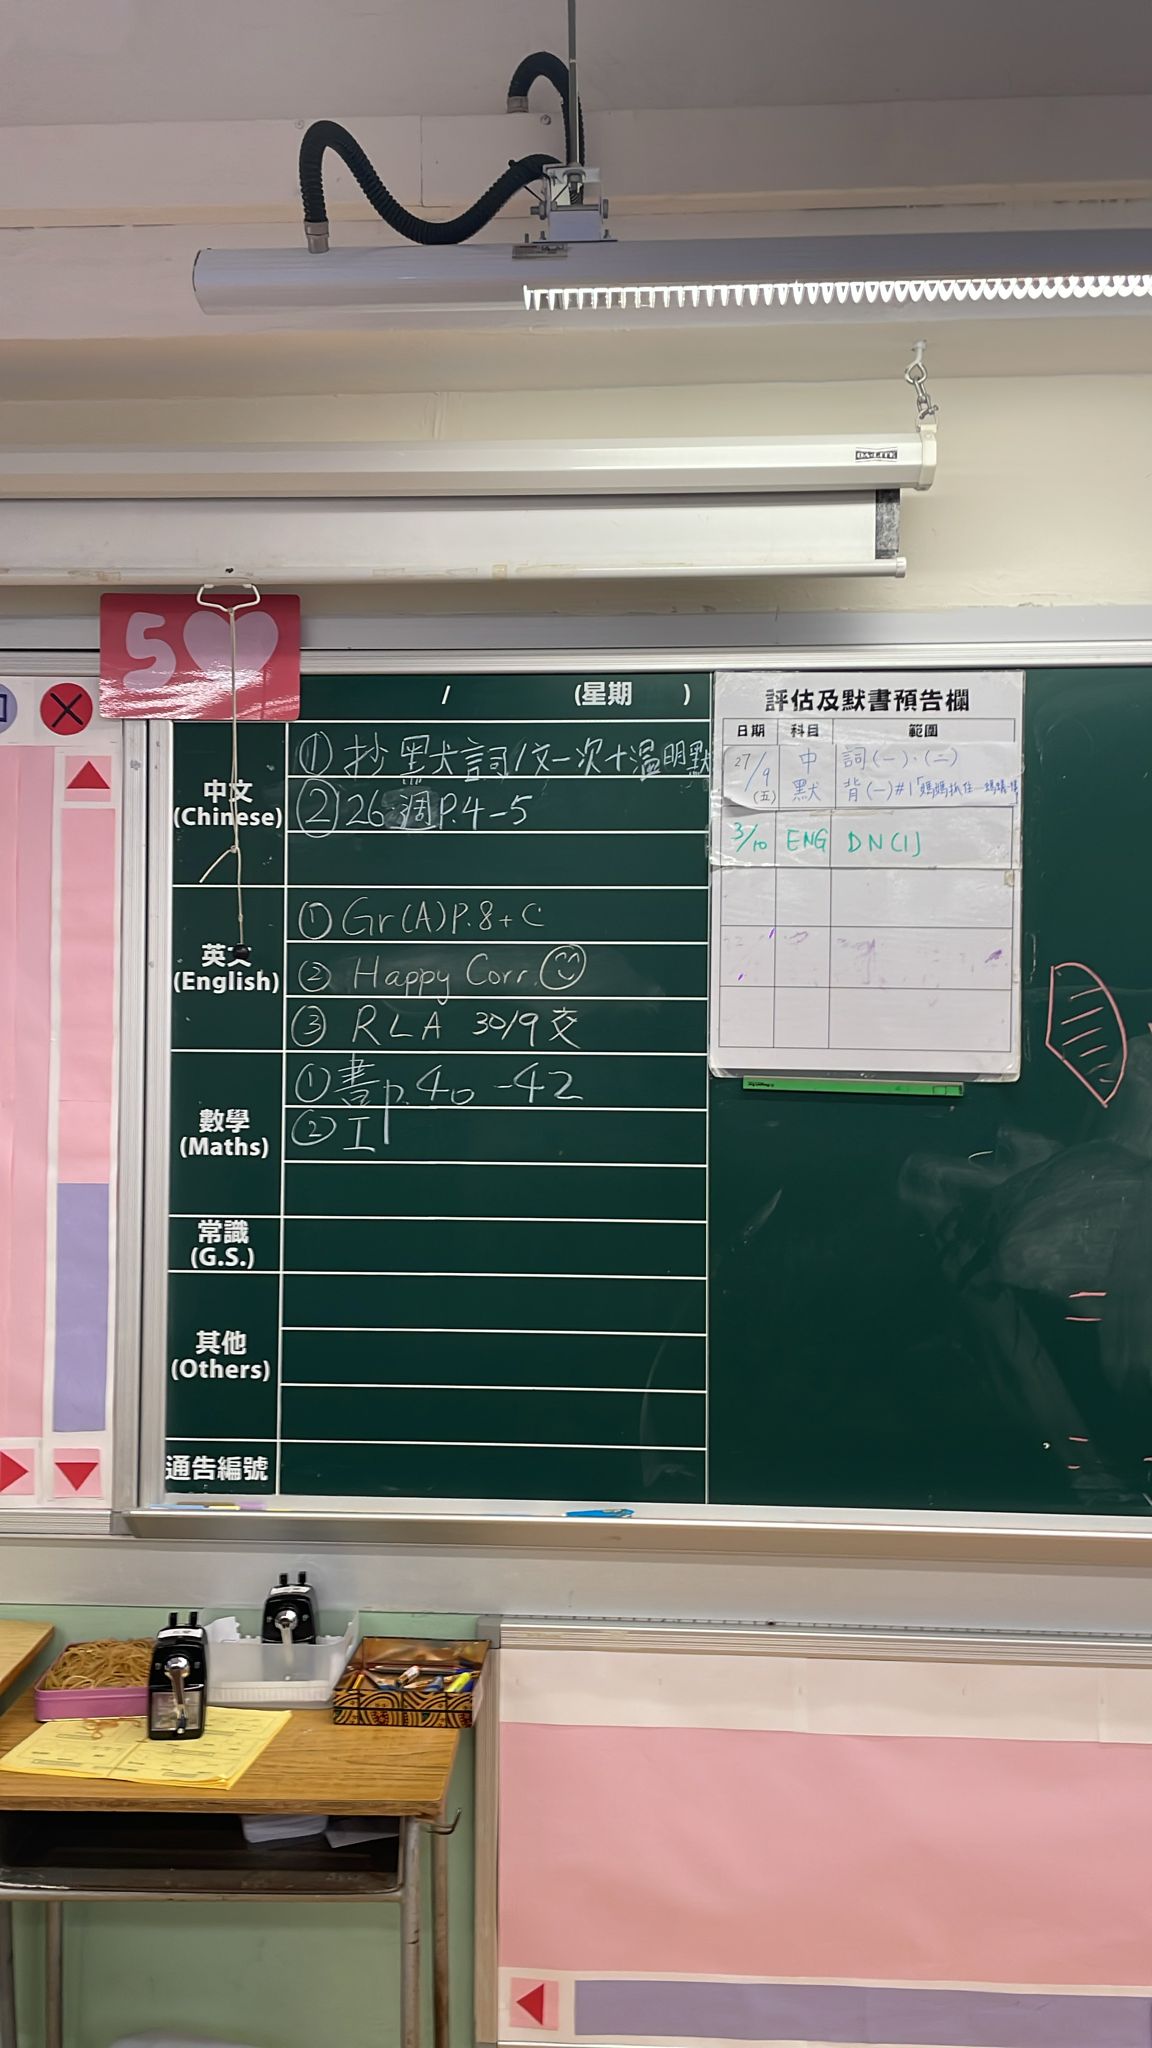 DA-LITE
5
/ (星期 )
中文
(Chinese)
① 抄默詞/文一次+溫明默
② 26週P.4-5
英文
(English)
① Gr(A)P.8+C
② Happy Corr.
③ RLA 30/9交
數學
(Maths)
① 書p.40-42
② 工
常識
(G.S.)
其他
(Others)
通告編號
評估及默書預告欄
日期 科目 範圍
27/9 (五) 中默 詞(一)、(二)
背(一)#1「媽媽抓住
3/10 ENG DN(1)